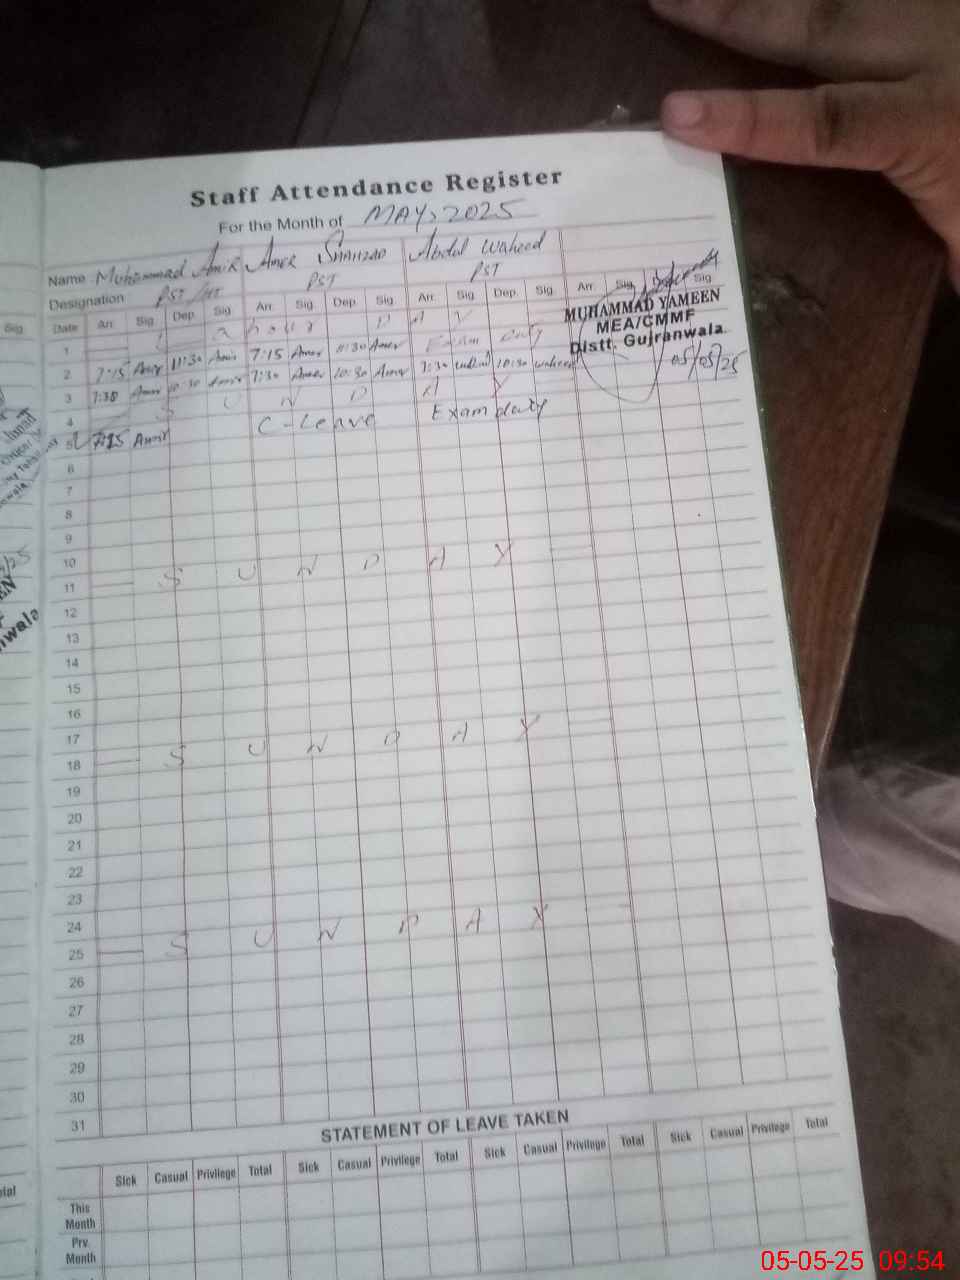 Staff Attendance Register
For the Month of MAY, 2025
Name Muhammad Amir Amer Shahzad Abdul Waheed
Designation PST PST PST
Date Arr. Sig. Dep. Sig. Arr. Sig. Dep. Sig. Arr. Sig. Dep. Sig. Arr. Sig. Sig.
MUHAMMAD YAMEEN
MEA/CMMF
Distt. Gujranwala.
05/05/25
1 D A Y
2 7:15 Amir 11:30 Amir 7:15 Amer 11:30 Amer Exam duty
3 7:30 Amir 10:30 Amir 7:30 Amer 10:30 Amer 7:30 waheed 10:30 waheed
4 S U N D A Y
5 7:15 Amir C-Leave Exam duty
6
7
8
9
10
11 S U N D A Y
12
13
14
15
16
17
18 S U N D A Y
19
20
21
22
23
24
25 S U N D A Y
26
27
28
29
30
31
STATEMENT OF LEAVE TAKEN
Sick Casual Privilege Total Sick Casual Privilege Total Sick Casual Privilege Total Sick Casual Privilege Total
This Month
Prv. Month
Sig.
05-05-25 09:54